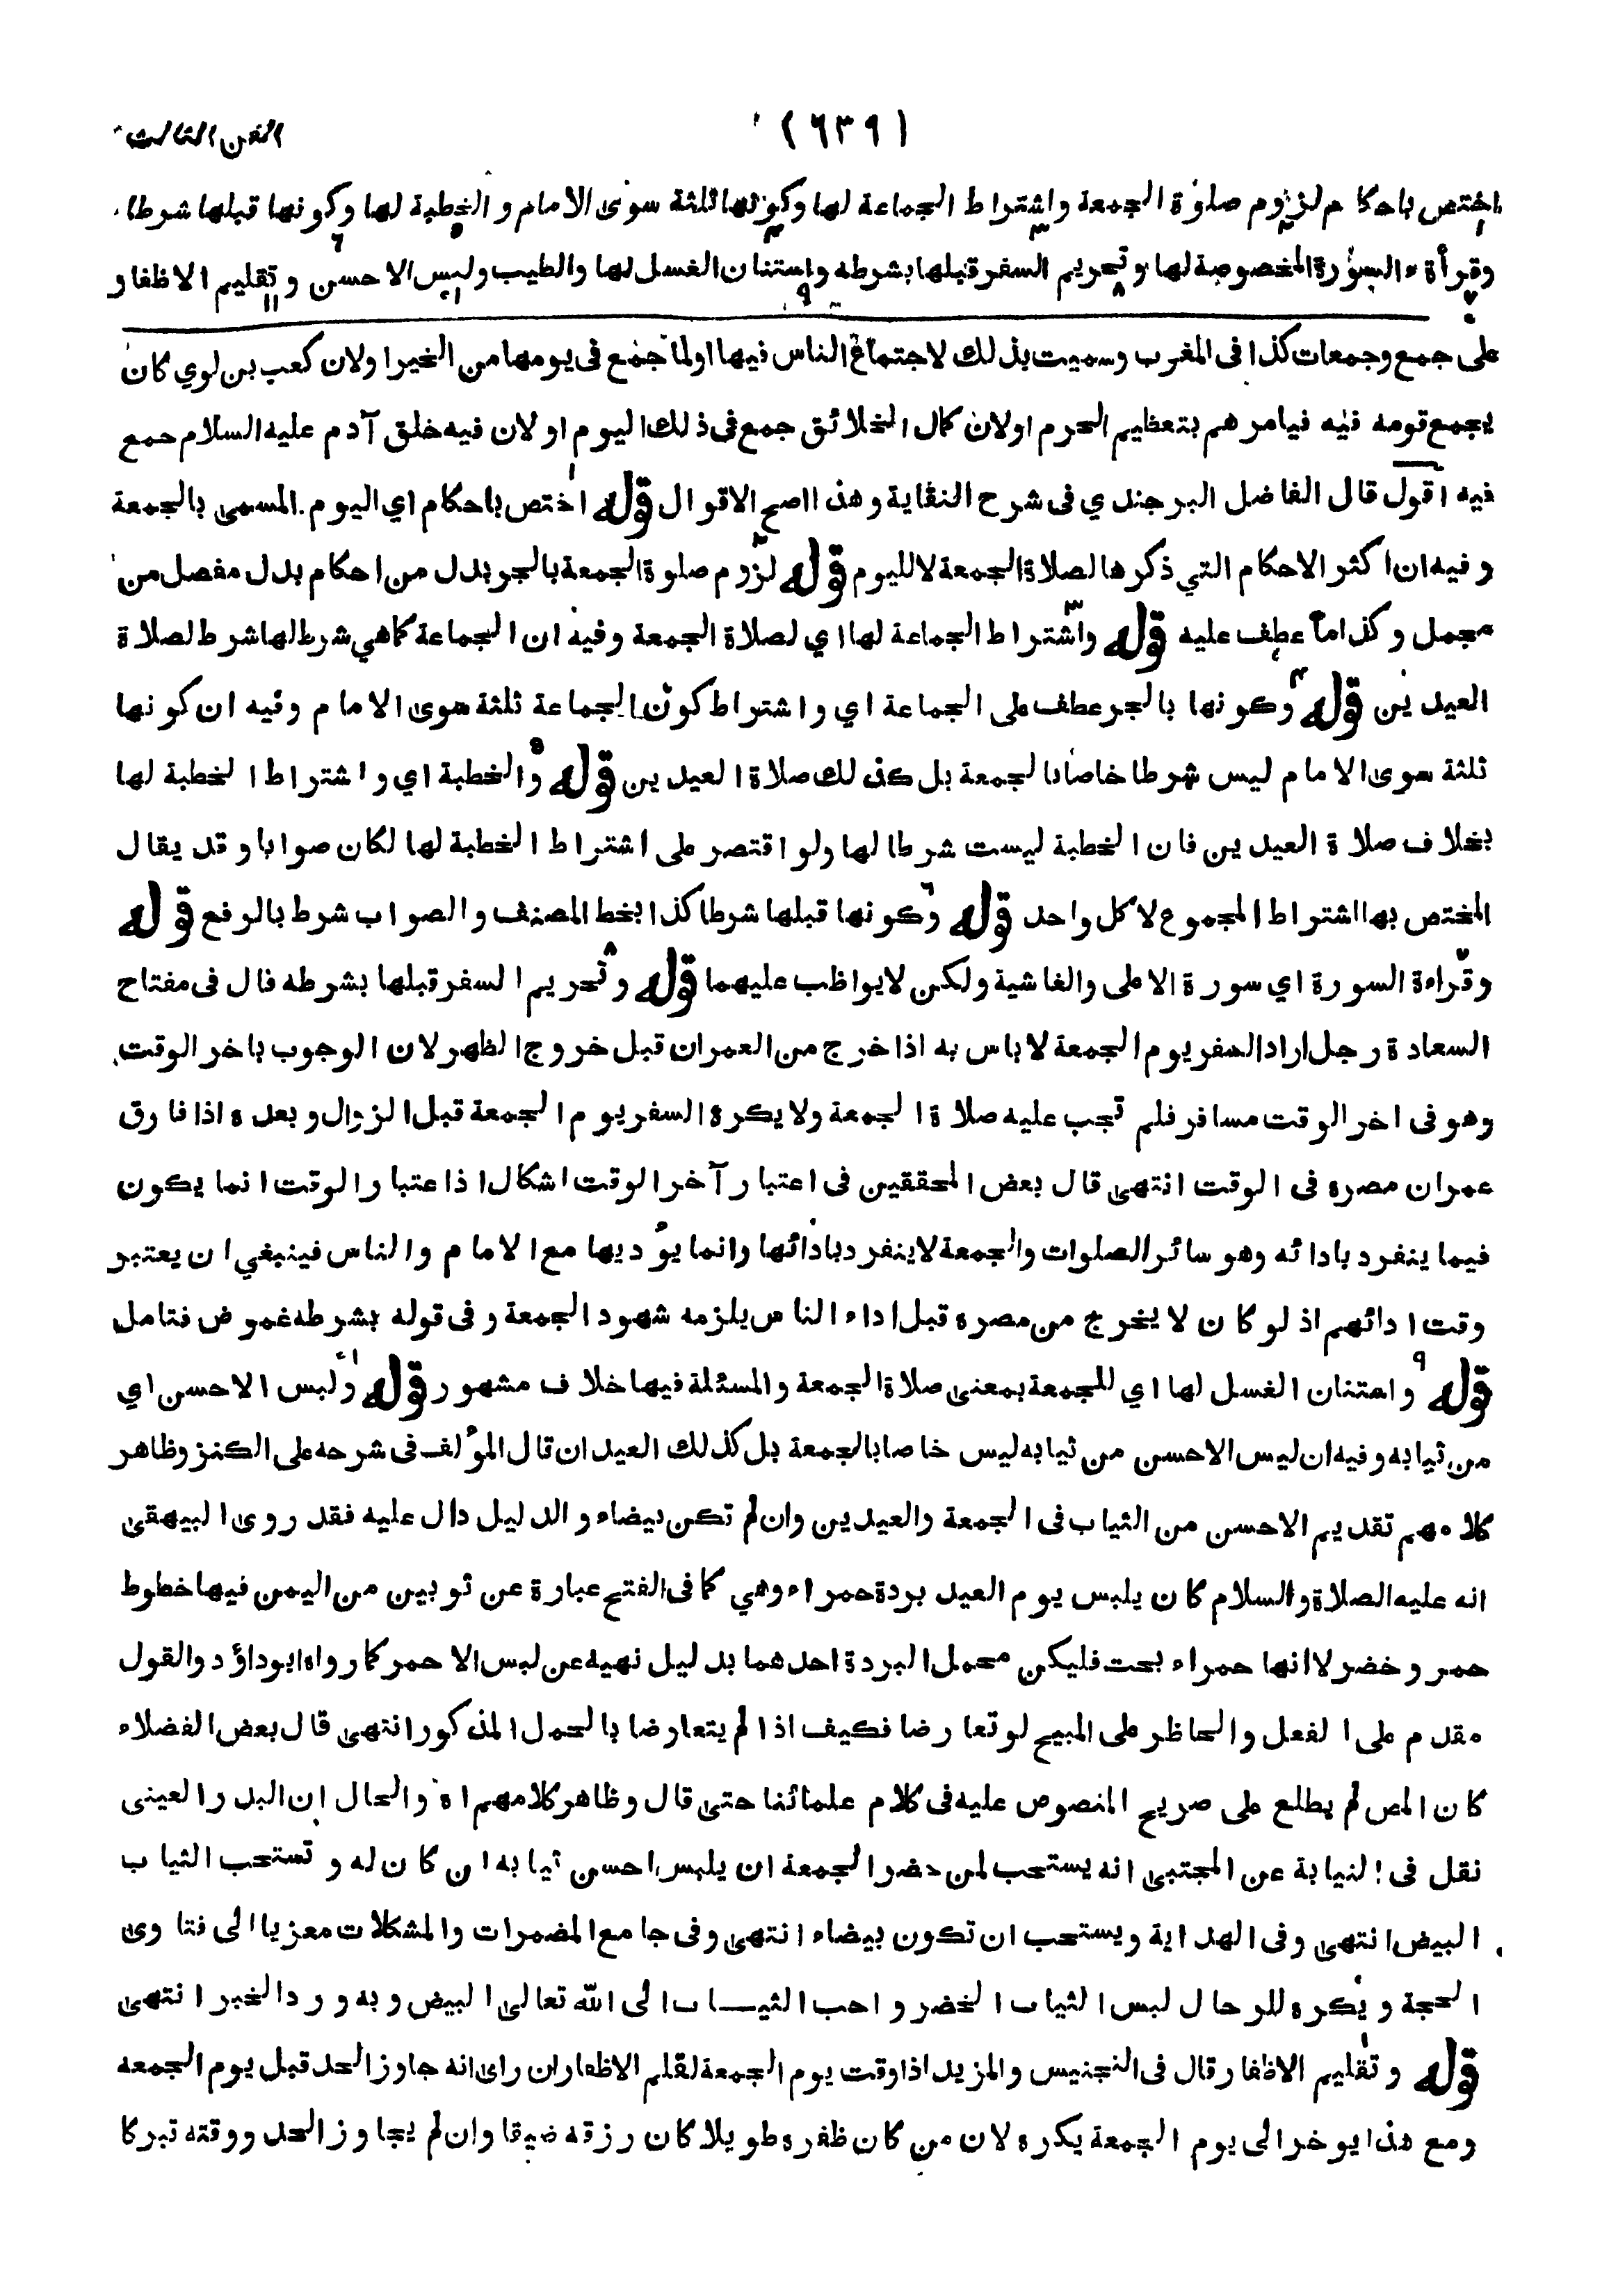 الفن الثالث (٦٣٩)
اختص باحكام لزوم صلوة الجمعة واشتراط الجماعة لها وكونها ثلثة سوى الامام والخطبة لها وكونها قبلها شرطا
وقرأة السورة المخصوصة لها وتحريم السفر قبلها بشرطه واستنان الغسل لها والطيب ولبس الاحسن وتقليم الاظفار و
على جمع وجمعات كذا فى المغرب وسميت بذلك لاجتماع الناس فيها اولما جمع فى يومها من الخير اولان كعب بن لوي كان
يجمع قومه فيه فيامرهم بتعظيم الحرم اولان كمال الخلائق جمع فى ذلك اليوم اولان فيه خلق آدم عليه السلام جمع
فيه اقول قال الفاضل البرجندي فى شرح النقاية وهذا اصح الاقوال قوله اختص باحكام اي اليوم المسمى بالجمعة
وفيه ان اكثر الاحكام التي ذكرها لصلاة الجمعة لا لليوم قوله لزوم صلوة الجمعة بالجر بدل من احكام بدل مفصل من
مجمل وكذا ما عطف عليه قوله واشتراط الجماعة لها اي لصلاة الجمعة وفيه ان الجماعة كما هي شرط لها شرط لصلاة
العيدين قوله وكونها بالجر عطف على الجماعة اي واشتراط كون الجماعة ثلثة سوى الامام وفيه ان كونها
ثلثة سوى الامام ليس شرطا خاصا بالجمعة بل كذلك صلاة العيدين قوله والخطبة اي واشتراط الخطبة لها
بخلاف صلاة العيدين فان الخطبة ليست شرطا لها ولو اقتصر على اشتراط الخطبة لها لكان صوابا وقد يقال
المختص بها اشتراط المجموع لا كل واحد قوله وكونها قبلها شرطا كذا بخط المصنف والصواب شرط بالرفع قوله
وقراءة السورة اي سورة الاعلى والغاشية ولكن لا يواظب عليهما قوله وتحريم السفر قبلها بشرطه قال فى مفتاح
السعادة رجل اراد السفر يوم الجمعة لا باس به اذا خرج من العمران قبل خروج الظهر لان الوجوب باخر الوقت
وهو فى اخر الوقت مسافر فلم تجب عليه صلاة الجمعة ولا يكره السفر يوم الجمعة قبل الزوال وبعده اذا فارق
عمران مصره فى الوقت انتهى قال بعض المحققين فى اعتبار آخر الوقت اشكال اذ اعتبار الوقت انما يكون
فيما ينفرد بادائه وهو سائر الصلوات والجمعة لا ينفرد بادائها وانما يؤديها مع الامام والناس فينبغي ان يعتبر
وقت ادائهم اذ لو كان لا يخرج من مصره قبل اداء الناس يلزمه شهود الجمعة وفى قوله بشرطه غموض فتامل
قوله واستنان الغسل لها اي للجمعة بمعنى صلاة الجمعة والمسئلة فيها خلاف مشهور قوله ولبس الاحسن اي
من ثيابه وفيه ان لبس الاحسن من ثيابه ليس خاصا بالجمعة بل كذلك العيدان قال المؤلف فى شرحه على الكنز وظاهر
كلامهم تقديم الاحسن من الثياب فى الجمعة والعيدين وان لم تكن بيضاء والدليل دال عليه فقد روى البيهقى
انه عليه الصلاة والسلام كان يلبس يوم العيد بردة حمراء وهي كما فى الفتح عبارة عن ثوبين من اليمن فيها خطوط
حمر وخضر لا انها حمراء بحت فليكن محمل البردة احدهما بدليل نهيه عن لبس الاحمر كما رواه ابوداؤد والقول
مقدم على الفعل والحاظر على المبيح لو تعارضا فكيف اذا لم يتعارضا بالحمل المذكور انتهى قال بعض الفضلاء
كان المص لم يطلع على صريح المنصوص عليه فى كلام علمائنا حتى قال وظاهر كلامهم اه والحال ان البدر العينى
نقل فى النيابة عن المجتبى انه يستحب لمن حضر الجمعة ان يلبس احسن ثيابه ان كان له وتستحب الثياب
البيض انتهى وفى الهداية ويستحب ان تكون بيضاء انتهى وفى جامع المضمرات والمشكلات معزيا الى فتاوى
الحجة ويكره للرجال لبس الثياب الخضر واحب الثياب الى الله تعالى البيض وبه ورد الخبر انتهى
قوله وتقليم الاظفار قال فى التجنيس والمزيد اذا وقت يوم الجمعة لقلم الاظفار ان راى انه جاوز الحد قبل يوم الجمعه
ومع هذا يوخر الى يوم الجمعة يكره لان من كان ظفره طويلا كان رزقه ضيقا وان لم يجاوز الحد ووقته تبركا